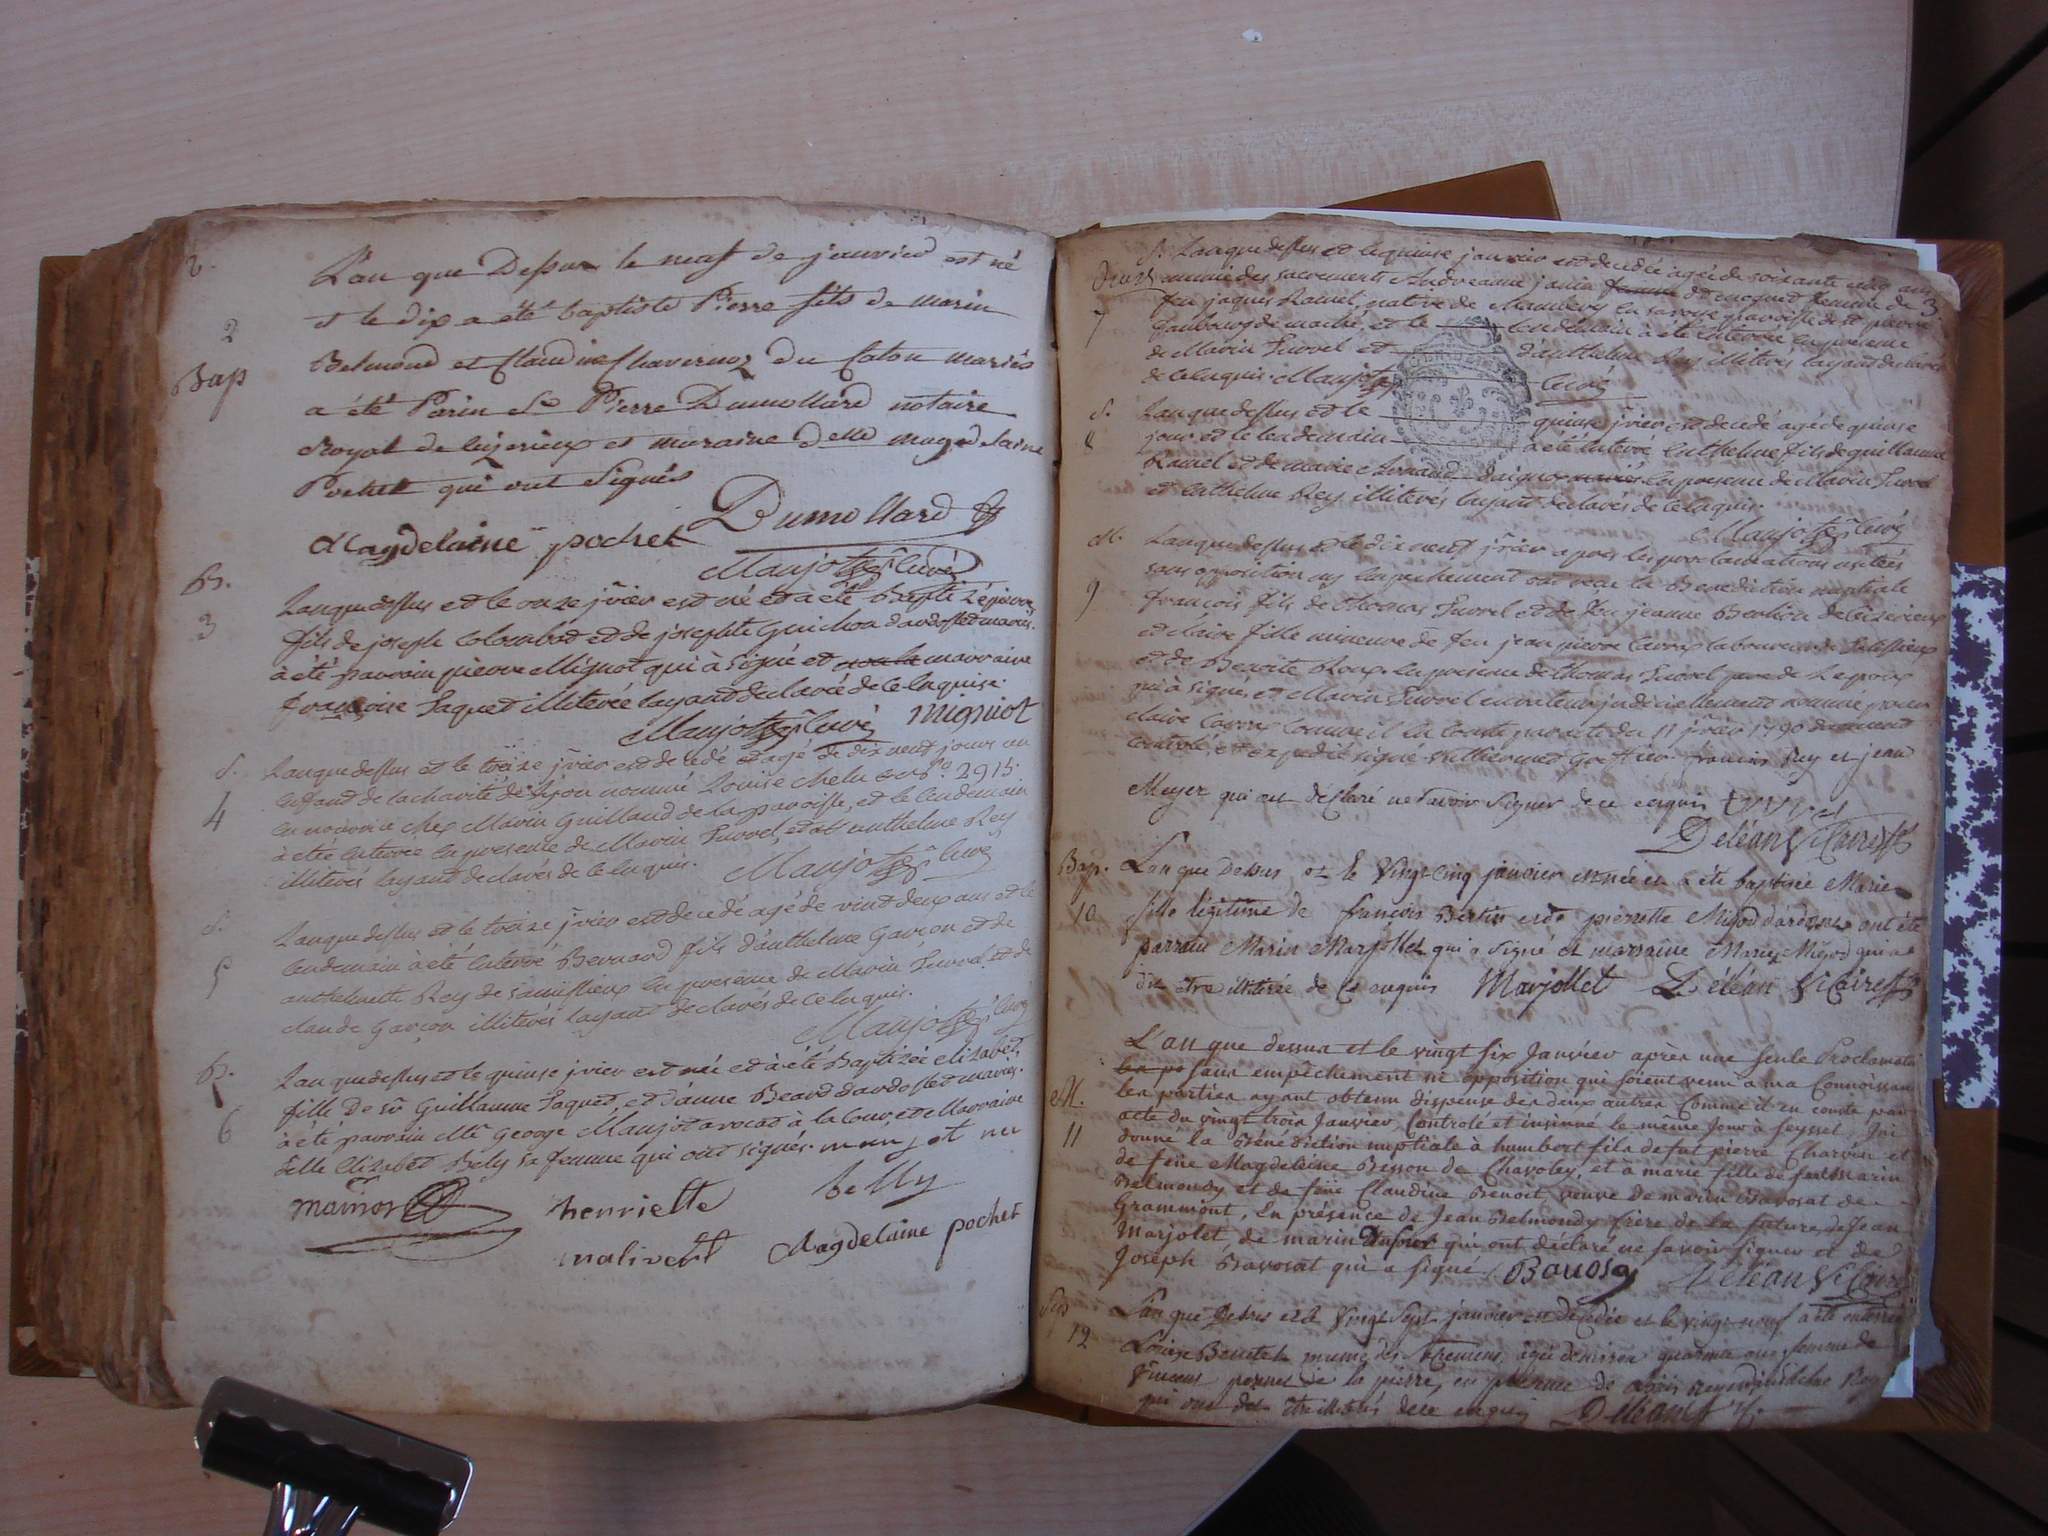 2.
L'an que Dessus le neuf de janvied est né
et le dix a été baptisté Pierre fils de marin
2
Bap
Belmond et Claudine Chavernoz du Caton mariés
a été Parin Sr Pierre Dumollard notaire
Royal de et maraine delle magdelaine
Pochet qui ont Signés
Magdelaine pochet Dumollard
Maujot curé
B.
3
Lanquedessus et le onze jvier est né et à été Baptizé pierre
fils de joseph Colombet et de josephte Guichon d'ardosset mariés.
à été parrain pierre Mignot qui à signé et marraine
francoise Jaquet illiterée layant declarée de ce enquise.
Maujot curé migniot
S.
4
Lanquedessus et le treize jvier est decedé et agé de dix neuf jours un
enfant de la charité de nommé Louise 2915.
en nourrice chez Marin Guilland de la paroisse, et le lendemain
à été enterré en presence de Marin Turrel, et anthelme Rey
illiterés layant declarés de ce enquis. Maujot curé
S.
5
Lanquedessus et le treize jvier est decedé agé de vint deux ans et le
lendemain à été enterré Bernard fils d'anthelme Garcon et de
anthelmette Rey de en presence de Marin Turrel et de
claude Garcon illiterés layant declarés de ce enquis.
Maujot curé
B.
6
Lanquedessus et le quinse jvier est née et à été Baptizée elizabet,
fille De sr Guillaume Jaquet, et d'anne Beard dardosset mariés.
à été parrain Mr George Maujot avocat à la Cour et Marraine
delle Elizabet Bely sa femme qui ont signés. maujot
belly
henriette
malivert Magdelaine pochet
S.
7
Lanquedessus et le quinse janvier est decedée agée de soixante cinq ans
munie des sacrements Andreanne janin femme de
feu jaques Ramel, native de en savoye paroisse de st pierre
et le lendemain à été enterrée en presence
de Marin Turrel et d'anthelme Rey illiterés layant declarés
de ce enquis. Maujot curé
3.
S.
8
Lanquedessus et le quinse jvier est decedé agé de quinse
jour et le lendemain à été enterré Enthelme fils de guillaume
Ramel et de marie en presence de Marin Turrel
et Enthelme Rey illiterés layant declarés de ce enquis.
Maujot curé
M.
9
Lanquedessus et le dix neuf jvier apres les proclamations usitées
sans opposition ny empechement ont reçu la Benediction nuptiale
francois fils de thomas Turrel et de feu jeanne Berlion
et claire fille mineure de feu jean pierre Carrex laboureur
et de Benoite Roux. en presence de thomas Turrel pere
qui à signé, et Marin Turrel curateur judiciellement nommé pour
claire Carrex comme il en conste par acte du 11 jvier 1790 duement
controlé et expedié signé greffier. francois Rey et jean
Meyer qui ont déclaré ne Savoir Signer de ce enquis turrel
Deléan Vicaire
Bap.
10
L'an que Dessus et le Vingt-Cinq janvier est née et a été baptisée Marie
fille légitime de françois Bertin et de pierrette Migod d'ardosset ont été
parrain Marin Marjollet qui a signé et marraine Marie Migod qui a
dit etre illiterée de ce enquis Marjollet Deléan Vicaire
M.
11
L'an que dessus et le vingt six Janvier après une seule Proclamation
sans empêchement ni opposition qui soient venu a ma Connoissance
les parties ayant obtenu dispense des deux autres Comme il en conste par
acte du vingt trois Janvier, Controlé et insinué le même jour à Seyssel, j'ai
donné la Bénédiction nuptiale à humbert fils de fut pierre Charvin et
de feüe Magdeleine Besson de Chavoley, et à marie fille de fut Marin
Belmondy et de feüe Claudine Benoit veuve de marin Bavosat de
Grammont, En présence de Jean Belmondy frère de la future, de Jean
Marjolet, de marin Dufour qui ont déclaré ne savoir signer et de
Joseph Bavosat qui a signé Bavosa Deléan Vicaire
Sep
12
L'an que Dessus et le Vingt Sept janvier est décédée et le vingt neuf a été enterrée
Louise munie des Sacremens, agée d'environ quarante ans femme de
Vincent de la pierre, en présence de Rey et d'anthelme Rey
qui ont dit etre illitérés de ce enquis Deléan